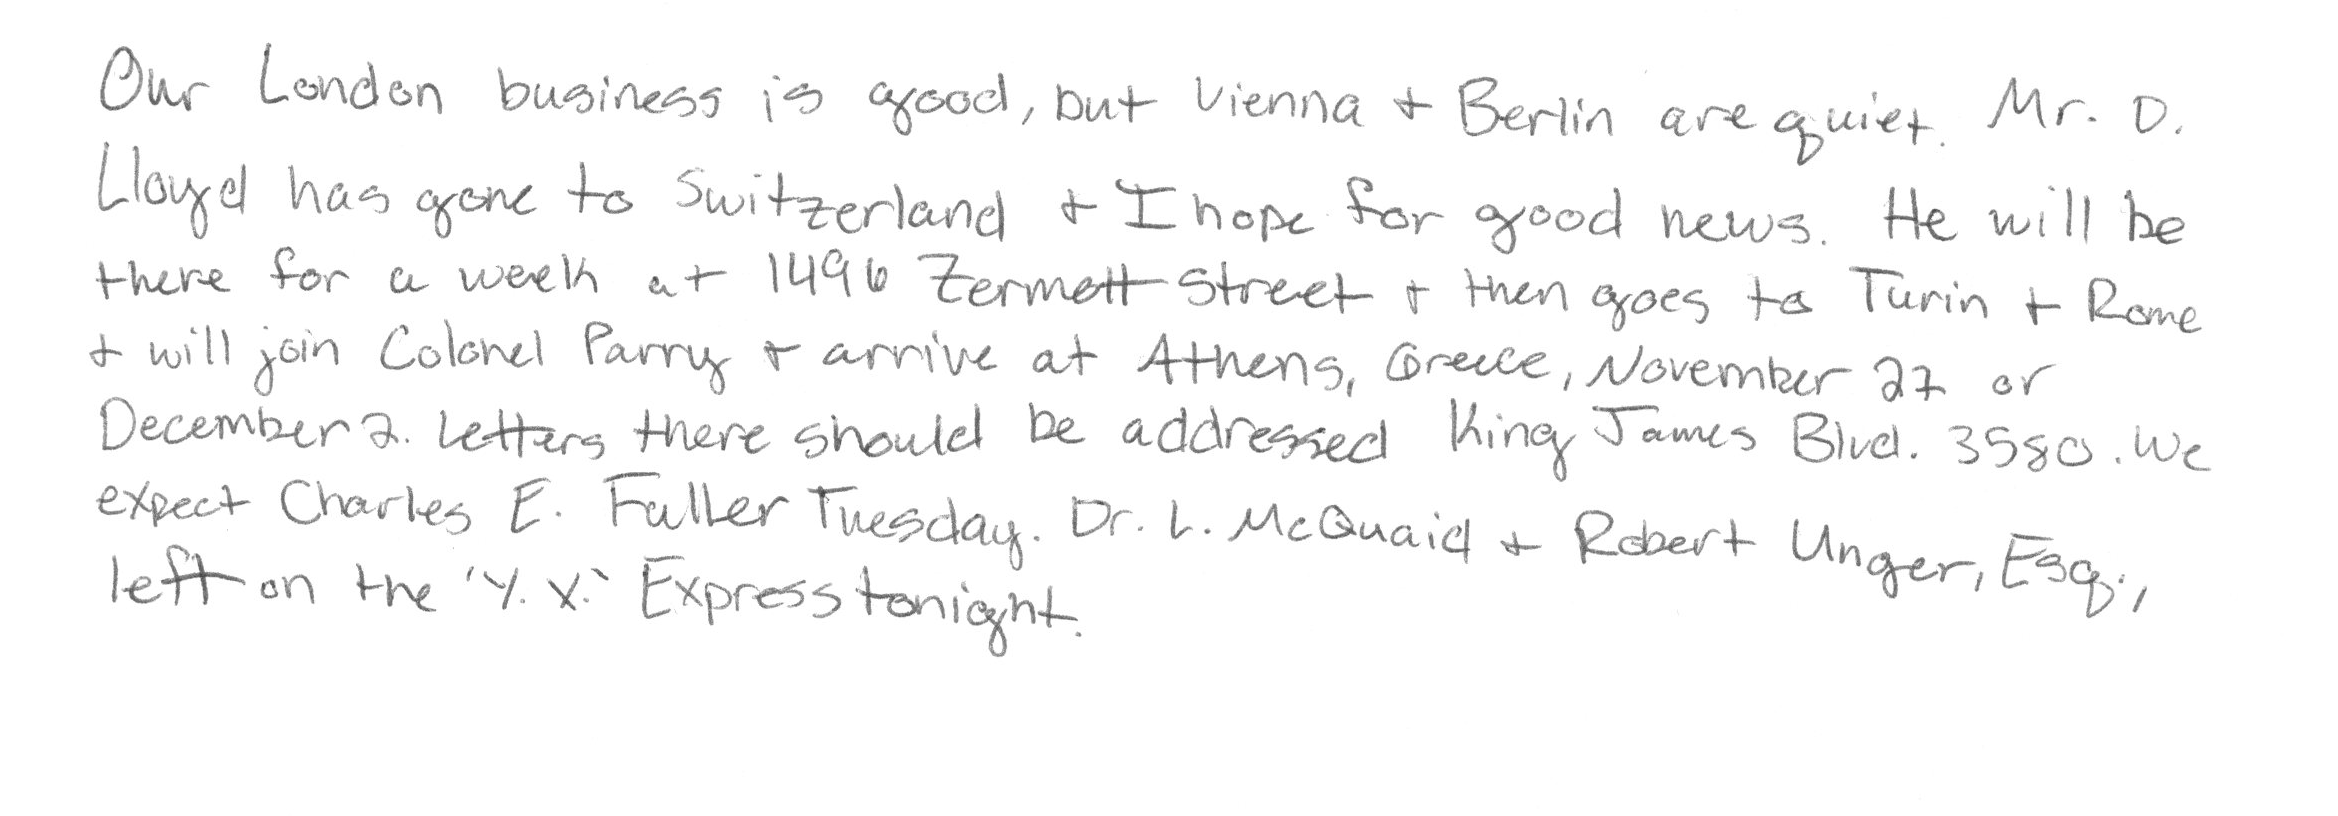 Our London business is good, but Vienna + Berlin are quiet. Mr. D.
Lloyd has gone to Switzerland + I hope for good news. He will be
there for a week at 1496 Zermott Street + then goes to Turin + Rome
+ will join Colonel Parry + arrive at Athens, Greece, November 27 or
December 2. Letters there should be addressed King James Blvd. 3580. We
expect Charles E. Fuller Tuesday. Dr. L. McQuaid + Robert Unger, Esq.,
left on the 'Y. X.' Express tonight.